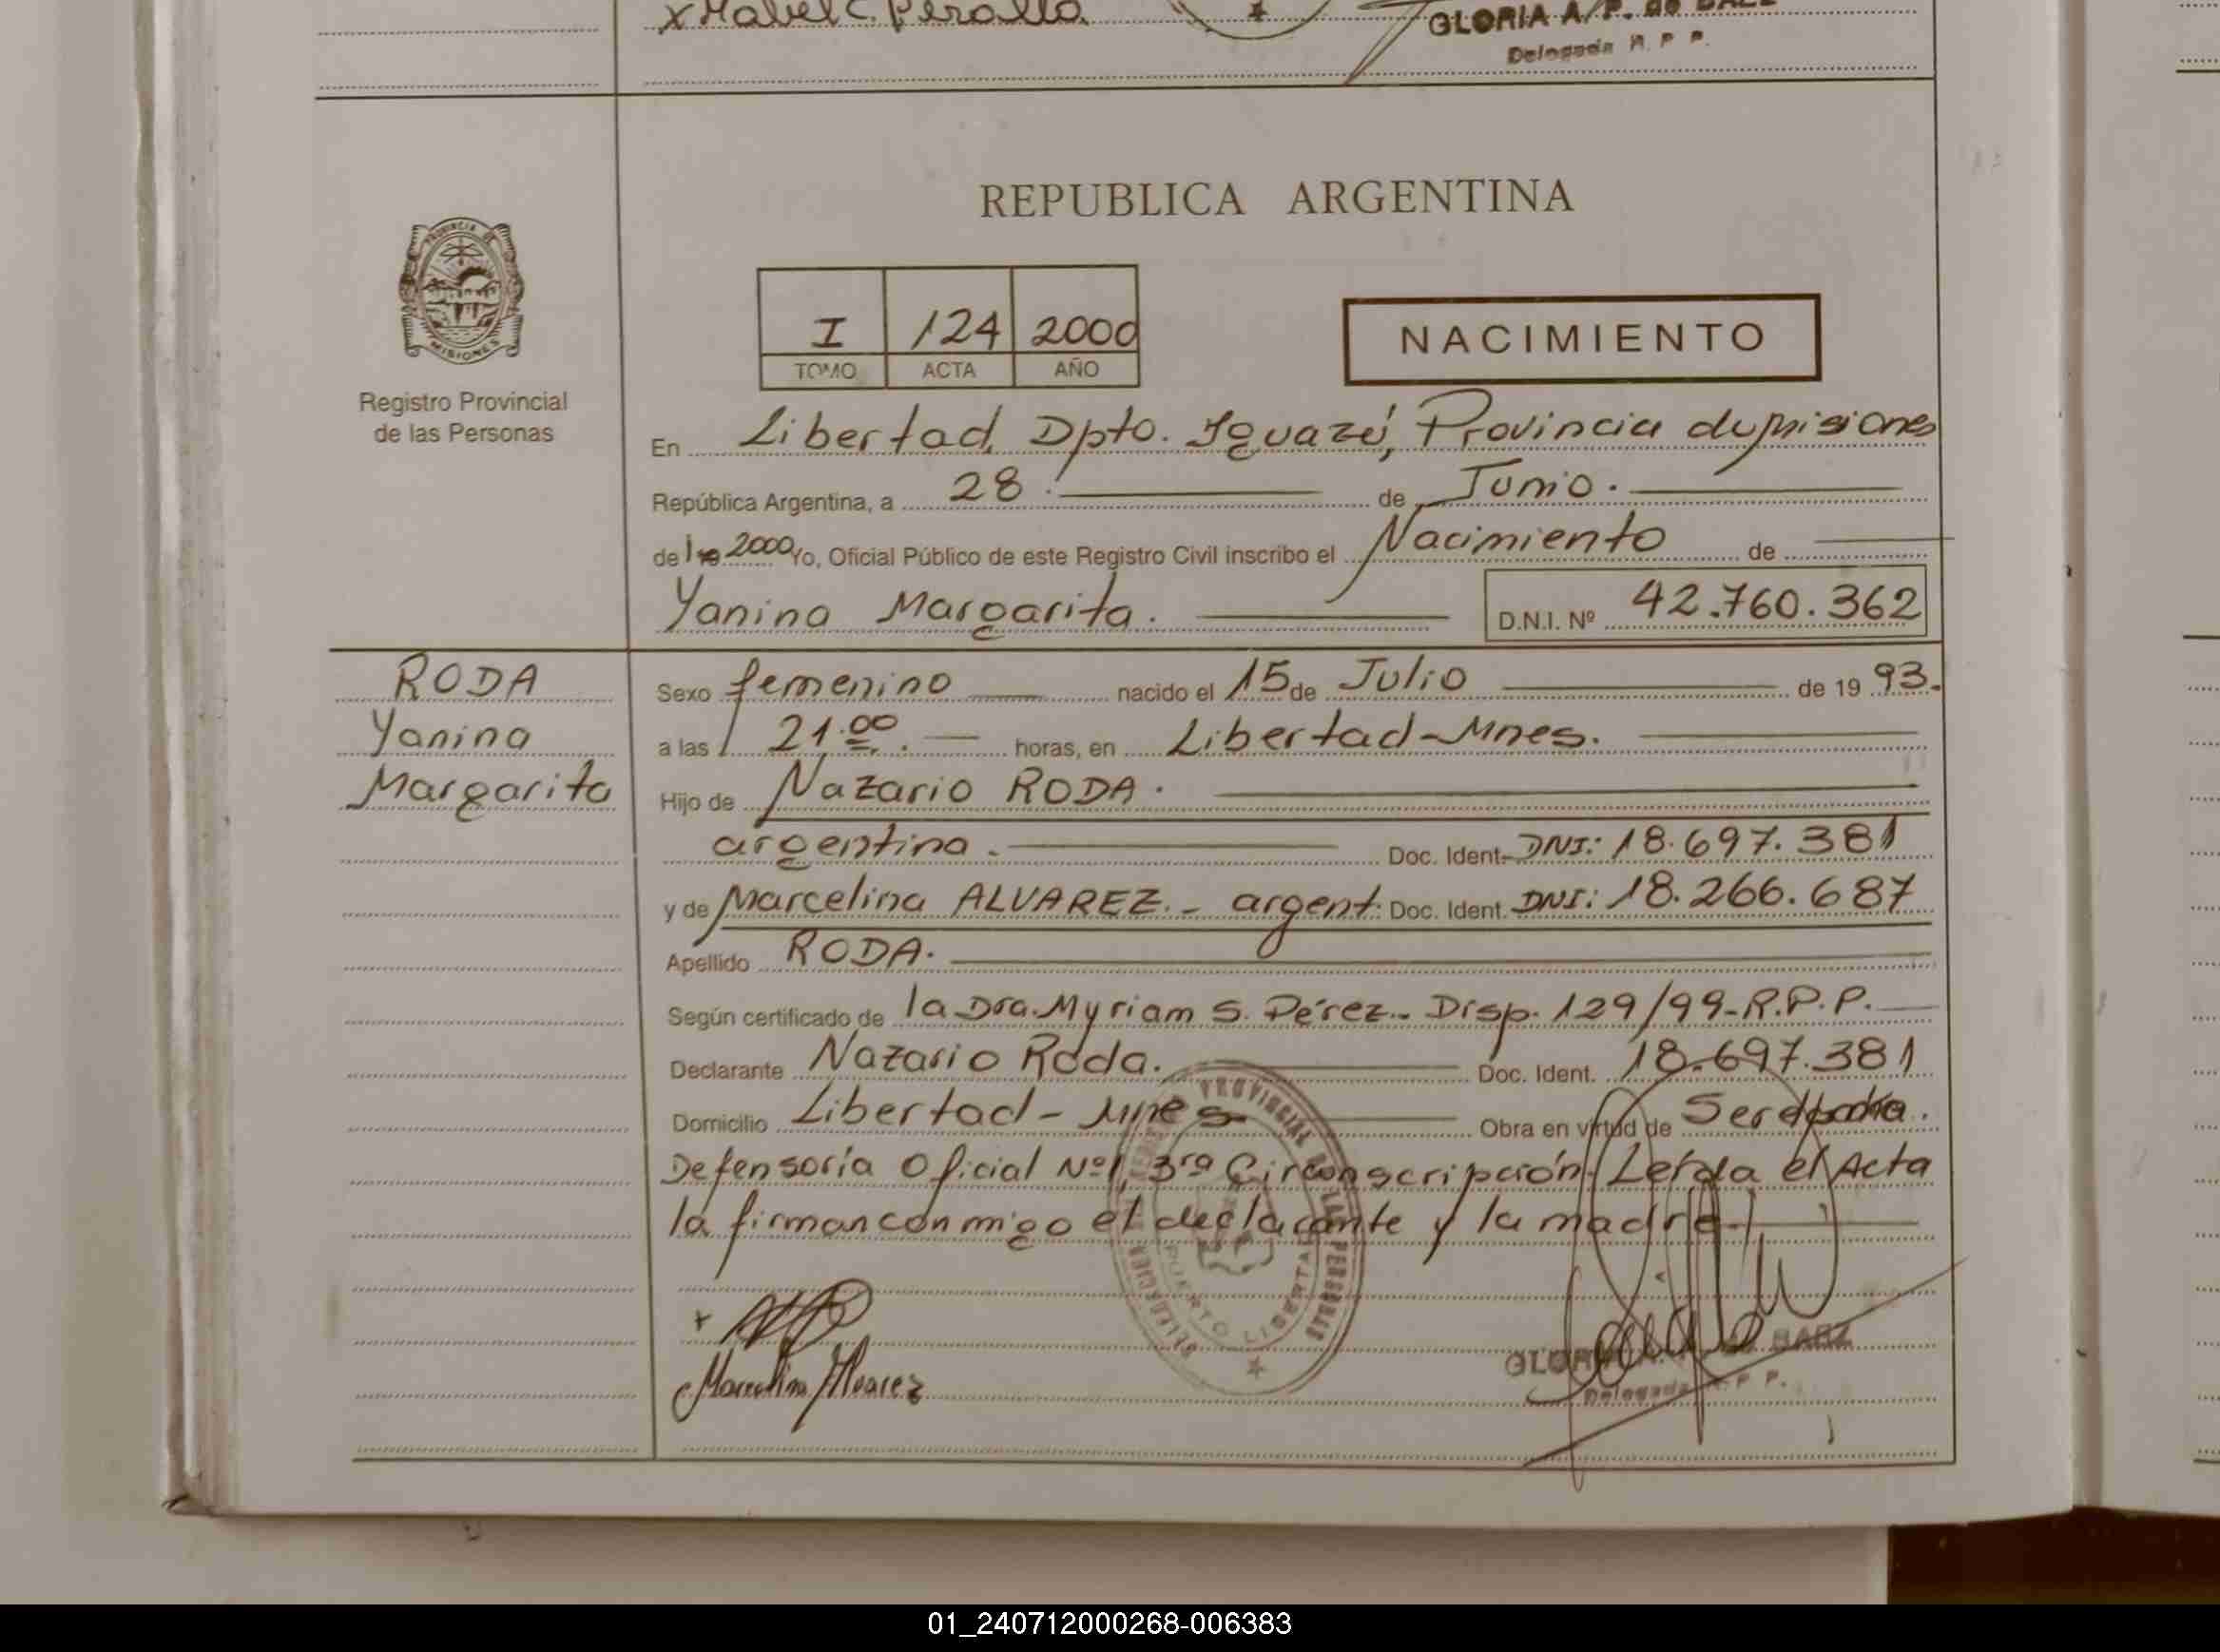 x Mabel C. Peralta
GLORIA A. P. de BAEZ
Delegada R. P. P.
REPUBLICA ARGENTINA
PROVINCIA DE
MISIONES
Registro Provincial
de las Personas
I 124 2000
TOMO ACTA AÑO
NACIMIENTO
En Libertad, Dpto. Iguazú, Provincia de Misiones
República Argentina, a 28.— de Junio.—
de 19 2000 Yo, Oficial Público de este Registro Civil inscribo el Nacimiento de —
Yanina Margarita.— D.N.I. Nº 42.760.362
RODA
Yanina
Margarita
Sexo femenino — nacido el 15 de Julio — de 19 93.
a las 21.00.— horas, en Libertad-Mnes.—
Hijo de Nazario RODA.—
argentina.— Doc. Ident. DNI: 18.697.381
y de Marcelina ALVAREZ.- argent. Doc. Ident. DNI: 18.266.687
Apellido RODA.—
Según certificado de la Dra. Myriam S. Pérez.- Disp. 129/99-R.P.P.—
Declarante Nazario Roda.— Doc. Ident. 18.697.381
Domicilio Libertad-Mnes — Obra en virtud de Ser
Defensoría Oficial Nº1, 3ra Circonscripción. Leída el Acta
la firman conmigo el declarante y la madre.—
PROVINCIAL DE LAS PERSONAS
PUERTO LIBERTAD
x
Marcelina Alvarez
GLORIA BAEZ
Delegada R. P. P.
01_240712000268-006383